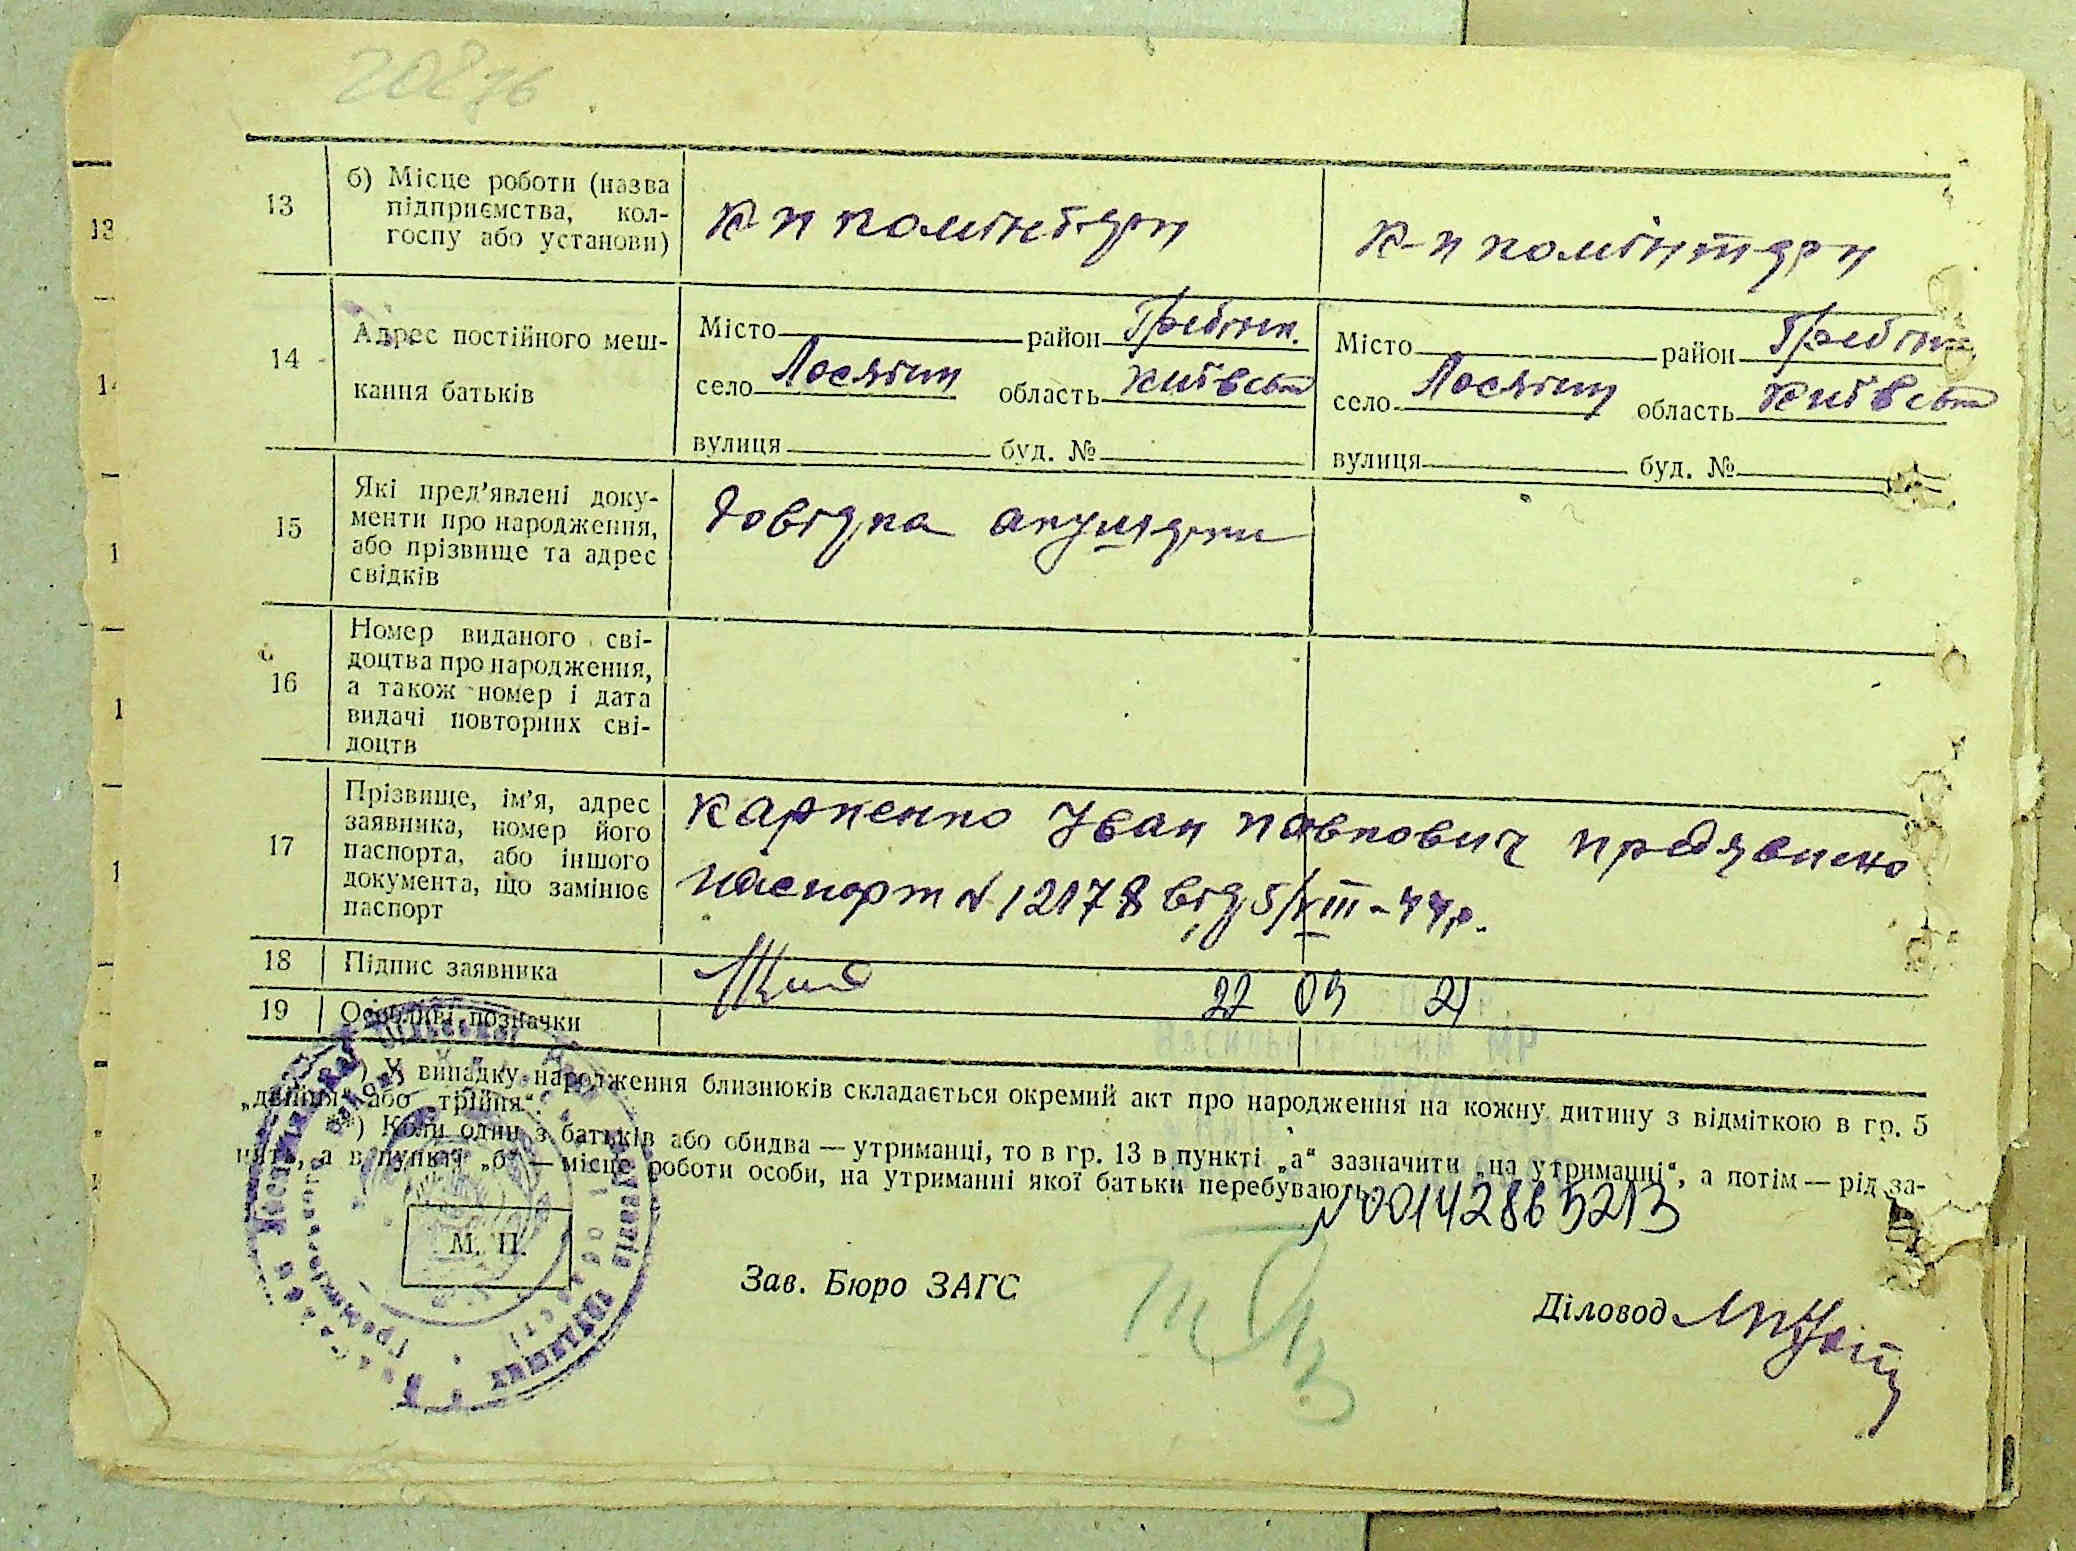 13
б) Місце роботи (назва
підприємства, кол-
госпу або установи)
к-п комінтерн
к-п комінтерн
14
Адрес постійного меш-
кання батьків
Місто район Гребінк.
село Лосятин область Київськ
вулиця буд. №
Місто район Гребінк
село Лосятин область Київськ
вулиця буд. №
15
Які пред’явлені доку-
менти про народження,
або прізвище та адрес
свідків
Довідка акушерки
16
Номер виданого сві-
доцтва про народження,
а також номер і дата
видачі повторних сві-
доцтв
17
Прізвище, ім’я, адрес
заявника, номер його
паспорта, або іншого
документа, що замінює
паспорт
Карпенко Іван Павлович предявлено
паспорт № 12178 від 5/VIII-44р.
18
Підпис заявника
22 09 21
19
Особливі позначки
*) У випадку народження близнюків складається окремий акт про народження на кожну дитину з відміткою в гр. 5
„двійня“ або „трійня“.
**) Коли один з батьків або обидва — утриманці, то в гр. 13 в пункті „а“ зазначити „на утриманні“, а потім — рід за-
нять, а в пункті „б“ — місце роботи особи, на утриманні якої батьки перебувають.
№00142865213
М. П.
Зав. Бюро ЗАГС
Діловод